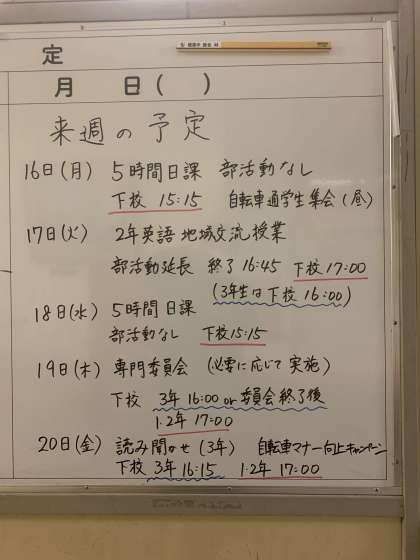 定
月 日( )
来週の予定
16日(月) 5時間日課 部活動なし
下校 15:15 自転車通学生集会(昼)
17日(火) 2年英語 地域交流授業
部活動延長 終了16:45 下校17:00
(3年生は下校 16:00)
18日(水) 5時間日課
部活動なし 下校15:15
19日(木) 専門委員会 (必要に応じて実施)
下校 3年 16:00 or 委員会終了後
1.2年 17:00
20日(金) 読み聞かせ(3年) 自転車マナー向上キャンペーン
下校 3年 16:15 1.2年 17:00